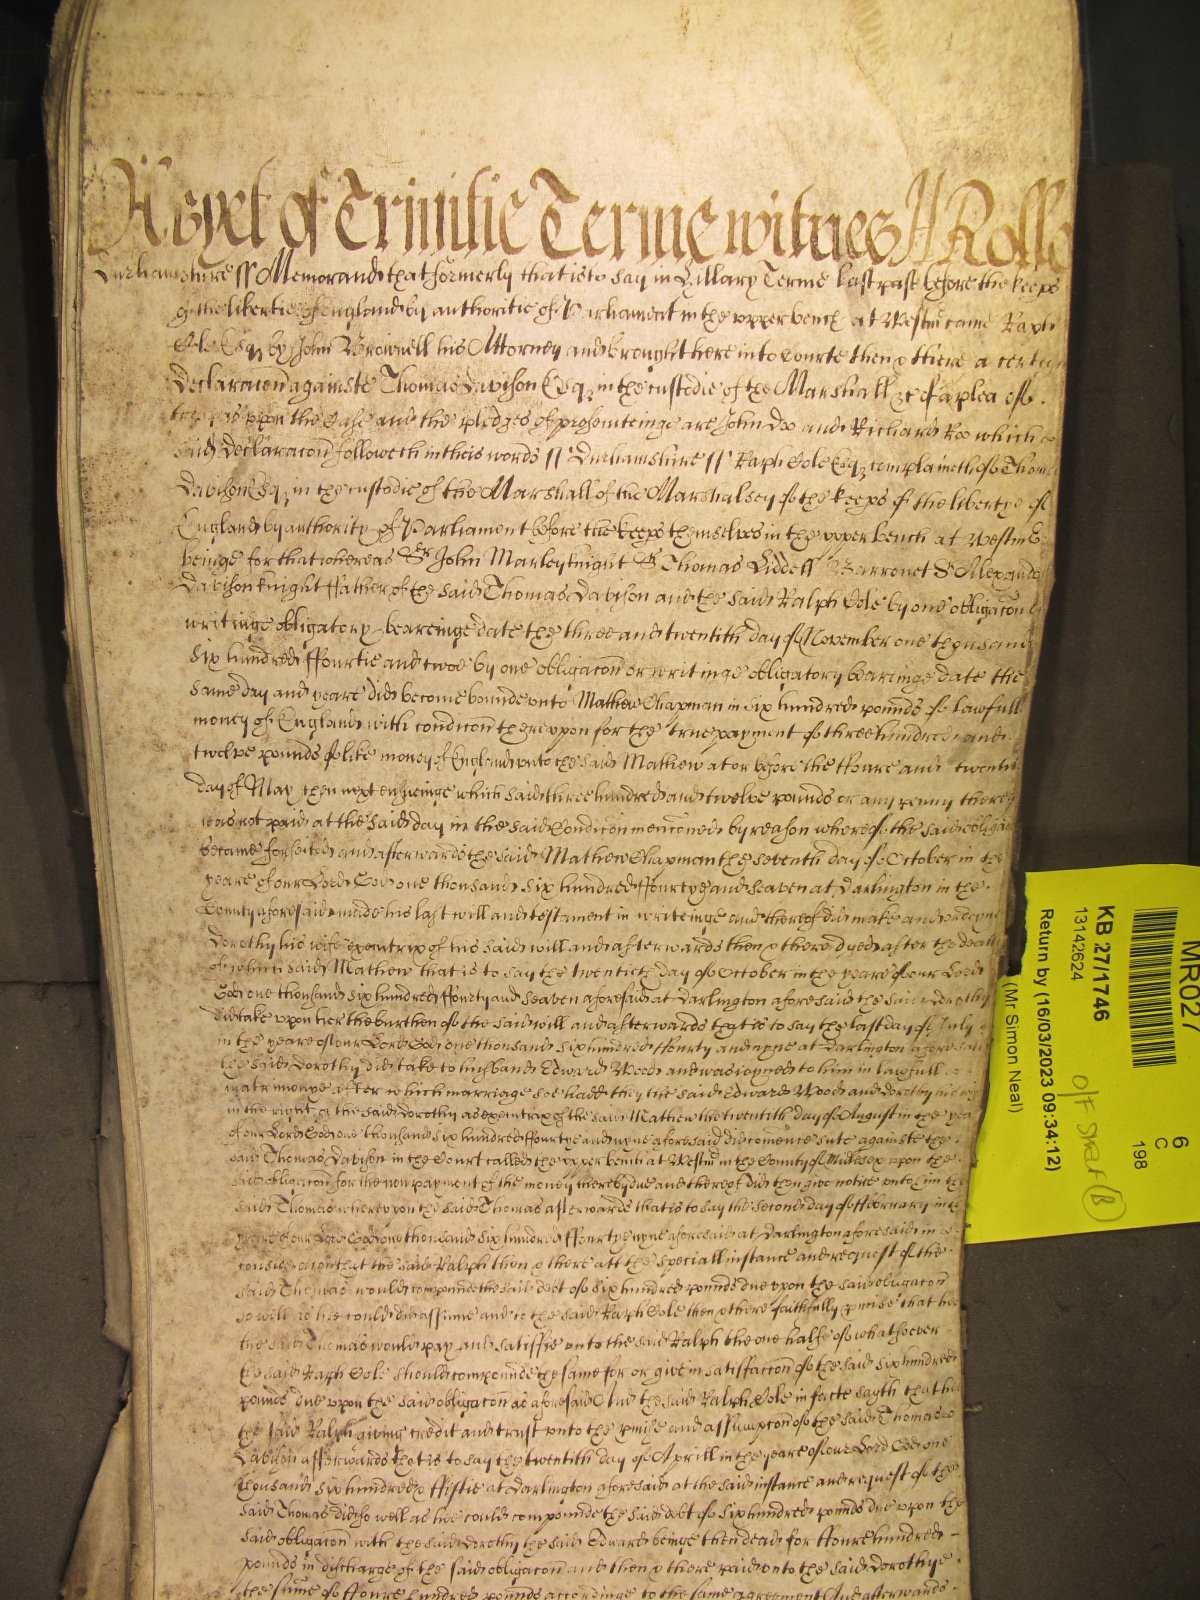 As yet of Trinitie Terme witnes H Rolle
Durhamshire ss Memorand that formerly that is to say in Hillary Terme last past before the keeps
of the libertie of England by authoritie of Parliament in the upper bench at Westm came Raph
Cole Esq by John Brownell his Attorney and brought here into Courte then & there a certen
declaracon againste Thomas Davison Esq in the custodie of the Marshall &c of a plea of
trespas upon the Case and the pledges of prosecuteinge are John Doo and Richard Roo which
said declaracon followeth in theis words ss Durhamshire ss Raph Cole Esq complaineth of Thomas
Davison Esq in the custodie of the Marshall of the Marshalsey of the keeps of the libertye of
England by authority of Parliament before the keeps themselves in the upper bench at Westm
beinge for that whereas Sr John Marley knight Sr Thomas Liddell Barronet Sr Alexander
Davison knight ffather of the said Thomas Davison and the said Ralph Cole by one obligacon or
writinge obligatory beareinge date the three and twentith day of November one thousand
six hundred ffourtie and twoe by one obligacon or writinge obligatory beareinge date the
same day and yeare did become bounde unto Mathew Chapman in six hundred pounds of lawfull
money of England with condicon thereupon for the true payment of three hundred and
twelve pounds of like money of England unto the said Mathew at or before the ffoure and twentith
day of May then next ensueinge which said three hundred and twelve pounds or any penny thereof
was not paid at the said day in the said Condicon menconed by reason whereof the said obligacon
became forfeited and afterwards the said Mathew Chapman the seventh day of October in the
yeare of our Lord God one thousand six hundred ffourtye and seaven at Darlington in the
County aforesaid made his last will and testament in writeinge and thereof did make and ordeyne
Dorothy his wife executrix of his said will and afterwards then & there dyed after the death
of which said Mathew that is to say the twentieth day of October in the yeare of our Lord
God one thousand six hundred ffourty and seaven aforesaid at Darlington aforesaid the said Dorothy
did take upon her the burthen of the said will and afterwards that is to say the last day of July
in the yeare of our Lord God one thousand six hundred ffourty and nyne at Darlington aforesaid
the said Dorothy did take to husband Edward Wood and was joyned to him in lawfull
matrimonye after which marriage soe hadd they the said Edward Wood and Dorothy his wife
in the right of the said Dorothy as executrix of the said Mathew the twentith day of August in the yeare
of our Lord God one thousand six hundred ffourtye and nyne aforesaid did comence sute againste the
said Thomas Davison in the Court called the upper bench at Westm in the County of Midlesex upon the
said obligacon for the non payment of the money thereby due and thereof did then give notice unto him the
said Thomas whereupon the said Thomas afterwards that is to say the second day of ffebruary in the
yeare of our Lord God one thousand six hundred ffourtye nyne aforesaid at Darlington aforesaid in
consideracon that the said Ralph then & there att the speciall instance and request of the
said Thomas would compounde the said debt of six hundred pounds due upon the said obligacon
so well as he could did assume and to the said Ralph Cole then & there faithfully pmise that hee
the said Thomas would pay and satisfie unto the said Ralph the one halfe of whatsoever
the said Raph Cole should compounde the same for or give in satisfaccon of the said six hundred
pounds due upon the said obligacon as aforesaid And the said Ralph Cole in facte sayth that hee
the said Ralph giving credit and trust unto the pmise and assumpcon of the said Thomas
Davison afterwards that is to say the twentith day of Aprill in the yeare of our Lord God one
thousand six hundred & ffiftie at Darlington aforesaid at the said instance and request of the
said Thomas did so well as hee could compounde the said debt of six hundred pounds due upon the
said obligacon with the said Dorothy the said Edward beinge then dead for ffoure hundred
pounds in discharge of the said obligacon and then & there paid unto the said Dorothye
the sume of ffoure hundred pounds accordinge to the same agreement And afterwards
MR027
6
C
198
KB 27/1746
13142624
O/F Shelf (B)
Return by (16/03/2023 09:34:12)
(Mr Simon Neal)